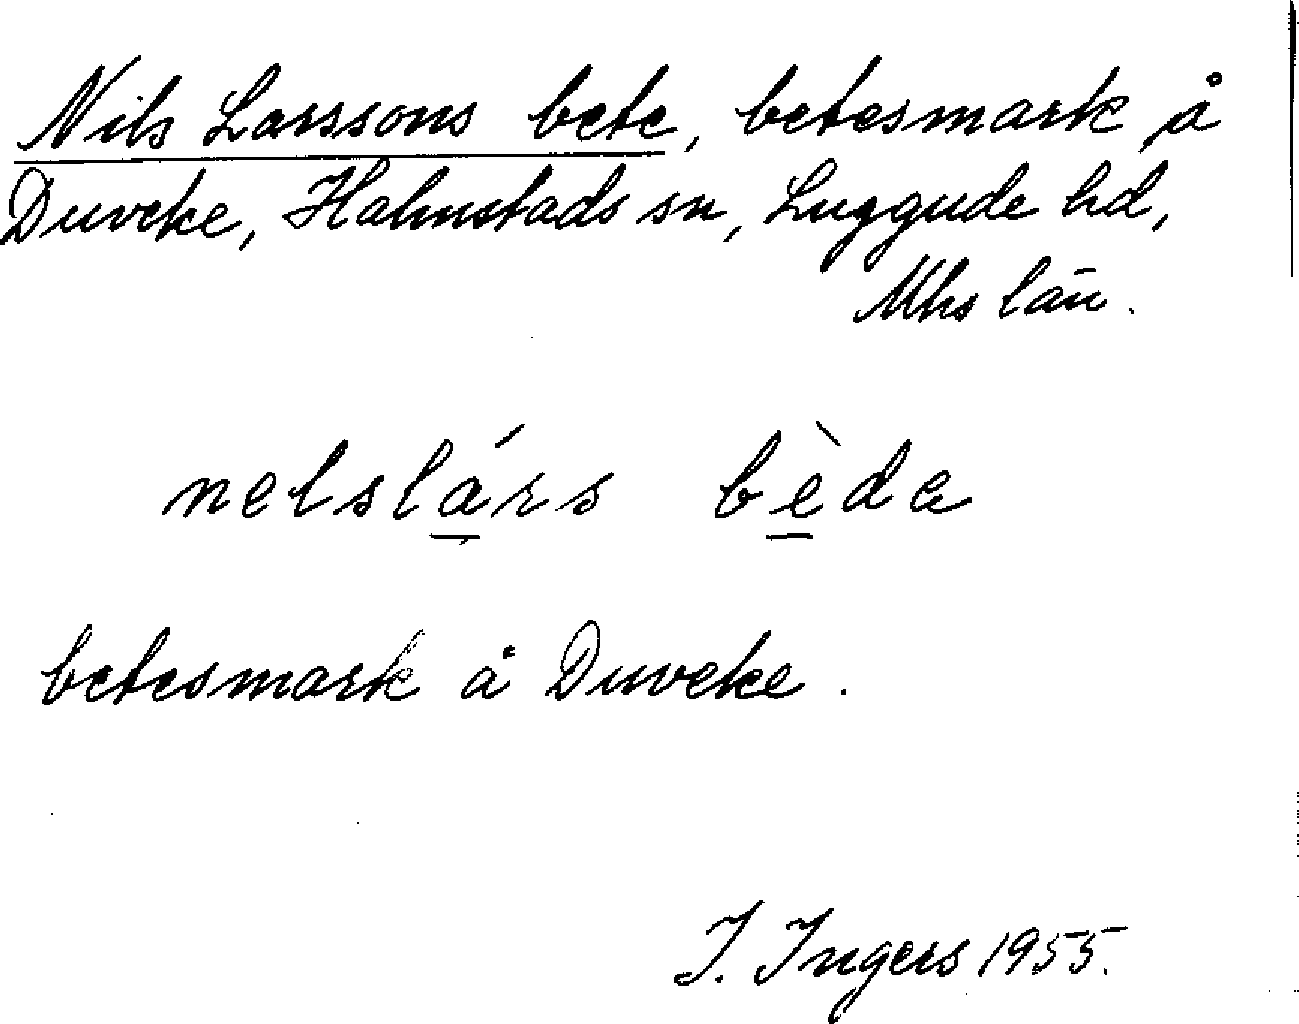 Nils Larssons bete, betesmark å
Duveke, Halmstads sn, Luggude hd,
Mhs län.
nelslárs bèda
betesmark å Duveke.
I. Ingers 1955.